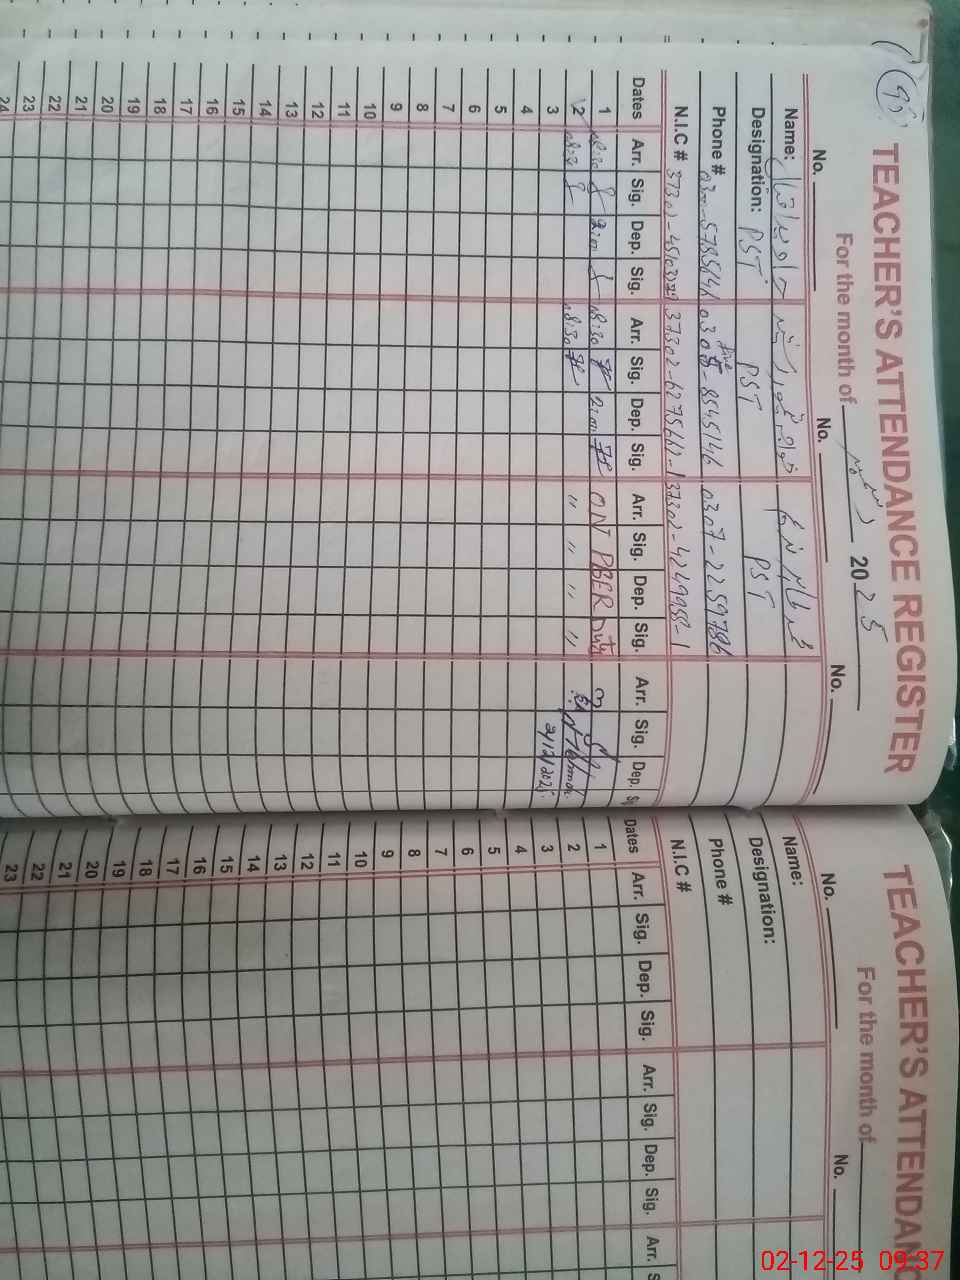 TEACHER'S ATTENDANCE REGISTER
For the month of دسمبر 2025
No. No. No.
Name:
Designation: PST PST PST
Phone # 0307-2259786
N.I.C # 37302-4249958-1
Dates Arr. Sig. Dep. Sig. Arr. Sig. Dep. Sig. Arr. Sig. Dep. Sig. Arr. Sig. Dep.
1 08:30 2:00 08:30 2:00 ON PBER Duty
2 08:30 08:30 " " " "
2/12/2025
3
4
5
6
7
8
9
10
11
12
13
14
15
16
17
18
19
20
21
22
23
24
TEACHER'S ATTENDANC
For the month of
No. No.
Name:
Designation:
Phone #
N.I.C #
Dates Arr. Sig. Dep. Sig. Arr. Sig. Dep. Sig. Arr. S
1
2
3
4
5
6
7
8
9
10
11
12
13
14
15
16
17
18
19
20
21
22
23
02-12-25 09:37